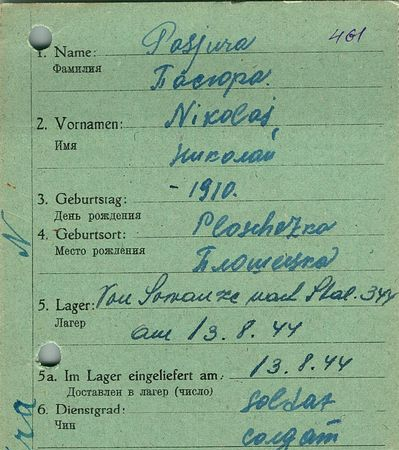 461
1. Name: Posjura
Фамилия Пасюра.
2. Vornamen: Nikolaj
Имя Николай
3. Geburtstag: - 1910.
День рождения
4. Geburtsort: Ploschezka
Место рождения Плошецка
5. Lager: Von nach Stal. 344
Лагерь am 13.8.44
5a. Im Lager eingeliefert am: 13.8.44
Доставлен в лагерь (число)
6. Dienstgrad: Soldat
Чин солдат